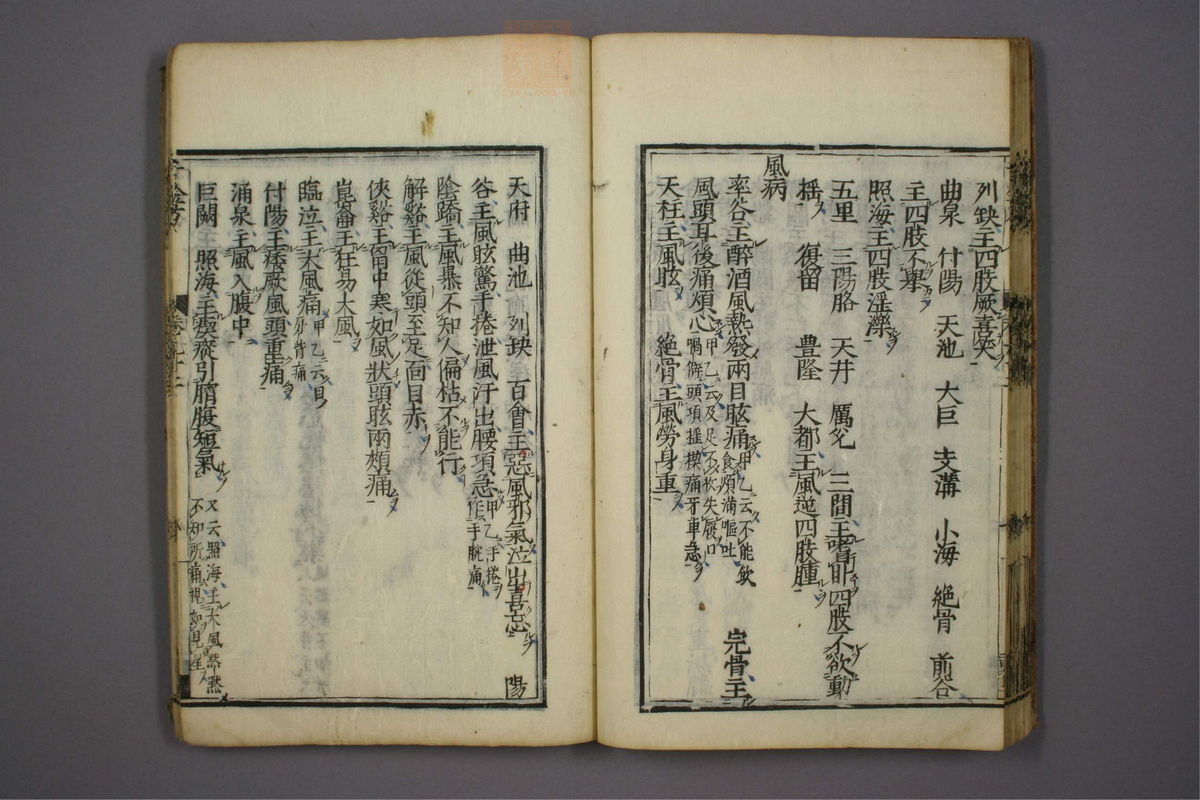 列缺主四肢厥喜笑
曲泉 付陽 天池 大巨 支溝 小海 絶骨 前谷
主四肢不舉
照海主四肢淫濼
五里 三陽胳 天井 厲兌 三間主嗜卧四肢不欲動
揺 復留 豊隆 大都主風逆四肢腫
風病
率谷主醉酒風熱發兩目眩痛甲乙云不能飲食煩滿嘔吐 完骨主
風頭耳後痛煩心甲乙云及足不收失履口喎僻頭項揺瘈痛牙車急
天柱主風眩 絶骨主風勞身重
天府 曲池 列缺 百會主惡風邪氣泣出喜忘 陽
谷主風眩驚手捲泄風汗出腰項急甲乙手捲作手腕痛
陰蹻主風暴不知人偏枯不能行
解谿主風從頭至足面目赤
俠谿主胷中寒如風狀頭眩兩頰痛
崑崙主狂易大風
臨泣主大風痛甲乙云身皆痛
付陽主痿厥風頭重痛
涌泉主風入腹中
巨闕 照海主瘈瘲引臍腹短氣又云照海主大風黙黙不知所痛視如見星